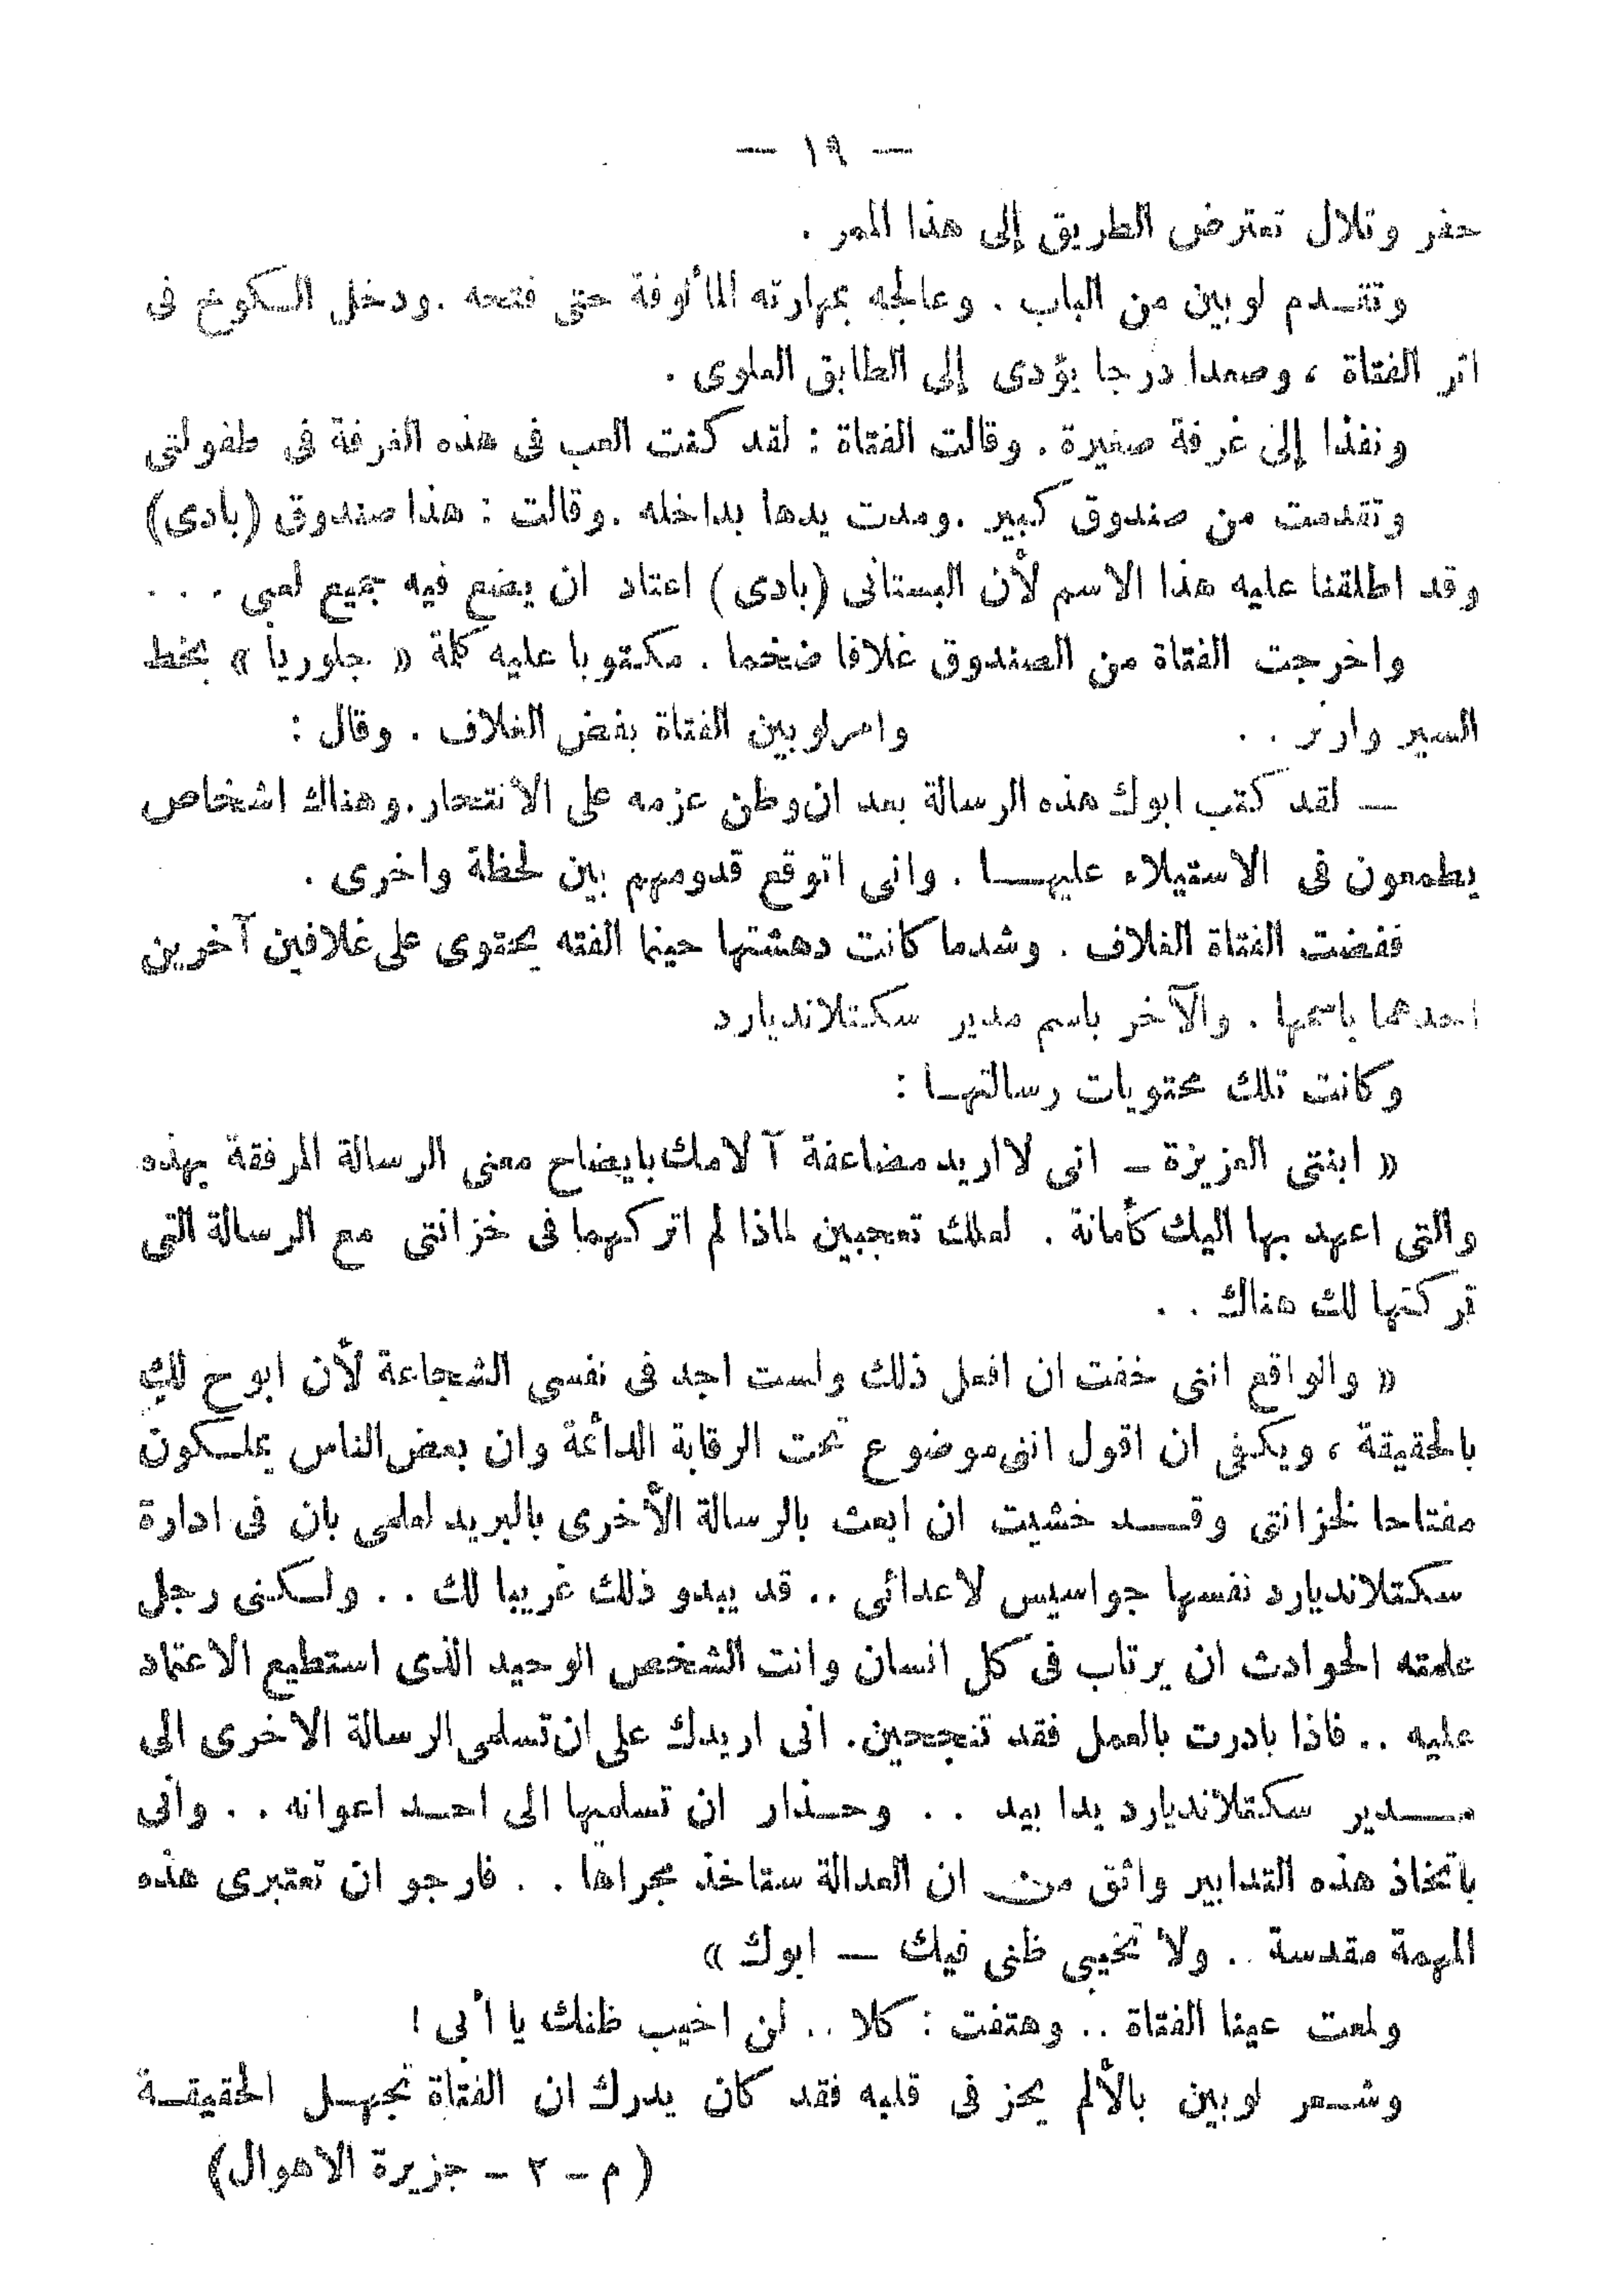 — ١٩ —
حفر وتلال تعترض الطريق إلى هذا الممر .
وتقدم لوبين من الباب . وعالجه بمهارته المألوفة حتى فتحه . ودخل الكوخ فى
اثر الفتاة ، وصعدا درجا يؤدى إلى الطابق العلوى .
ونفذا إلى غرفة صغيرة . وقالت الفتاة : لقد كنت العب فى هذه الغرفة فى طفولتى
وتقدمت من صندوق كبير . ومدت يدها بداخله . وقالت : هذا صندوق (بادى)
وقد اطلقنا عليه هذا الاسم لأن البستانى (بادى) اعتاد ان يضع فيه جميع لعبى . . .
واخرجت الفتاة من الصندوق غلافا ضخما . مكتوبا عليه كلمة « جلوريا » بخط
السير وارنر . . وامر لوبين الفتاة بفض الغلاف . وقال :
— لقد كتب ابوك هذه الرسالة بعد ان وطن عزمه على الأنتحار . وهناك اشخاص
يطمعون فى الاستيلاء عليها . وانى اتوقع قدومهم بين لحظة واخرى .
ففضت الفتاة الغلاف . وشدما كانت دهشتها حينما الفته يحتوى على غلافين آخرين
احدهما باسمها . والآخر باسم مدير سكتلانديارد
وكانت تلك محتويات رسالتها :
« ابنتى العزيزة — انى لا اريد مضاعفة آلامك بايضاح معنى الرسالة المرفقة بهذه
والتى اعهد بها اليك كأمانة . لعلك تعجبين لماذا لم اتركهما فى خزانتى مع الرسالة التى
تركتها لك هناك . .
« والواقع اننى خفت ان افعل ذلك ولست اجد فى نفسى الشجاعة لأن ابوح لك
بالحقيقة ، ويكفى ان اقول اننى موضوع تحت الرقابة الدائمة وان بعض الناس يملكون
مفتاحا لخزانتى وقد خشيت ان ابعث بالرسالة الأخرى بالبريد لعلمى بان فى ادارة
سكتلانديارد نفسها جواسيس لاعدائى .. قد يبدو ذلك غريبا لك . . ولكنى رجل
علمته الحوادث ان يرتاب فى كل انسان وانت الشخص الوحيد الذى استطيع الاعتماد
عليه .. فاذا بادرت بالعمل فقد تنجحين . انى اريدك على ان تسلمى الرسالة الاخرى الى
مدير سكتلانديارد يدا بيد . . وحذار ان تسلميها الى احد اعوانه . . وأنى
باتخاذ هذه التدابير واثق من ان العدالة ستاخذ مجراها . . فارجو ان تعتبرى هذه
المهمة مقدسة .. ولا تخيبى ظنى فيك — ابوك »
ولمعت عينا الفتاة .. وهتفت : كلا .. لن اخيب ظنك يا أبى !
وشعر لوبين بالألم يحز فى قلبه فقد كان يدرك ان الفتاة تجهل الحقيقة
( م — ٢ — جزيرة الاهوال)